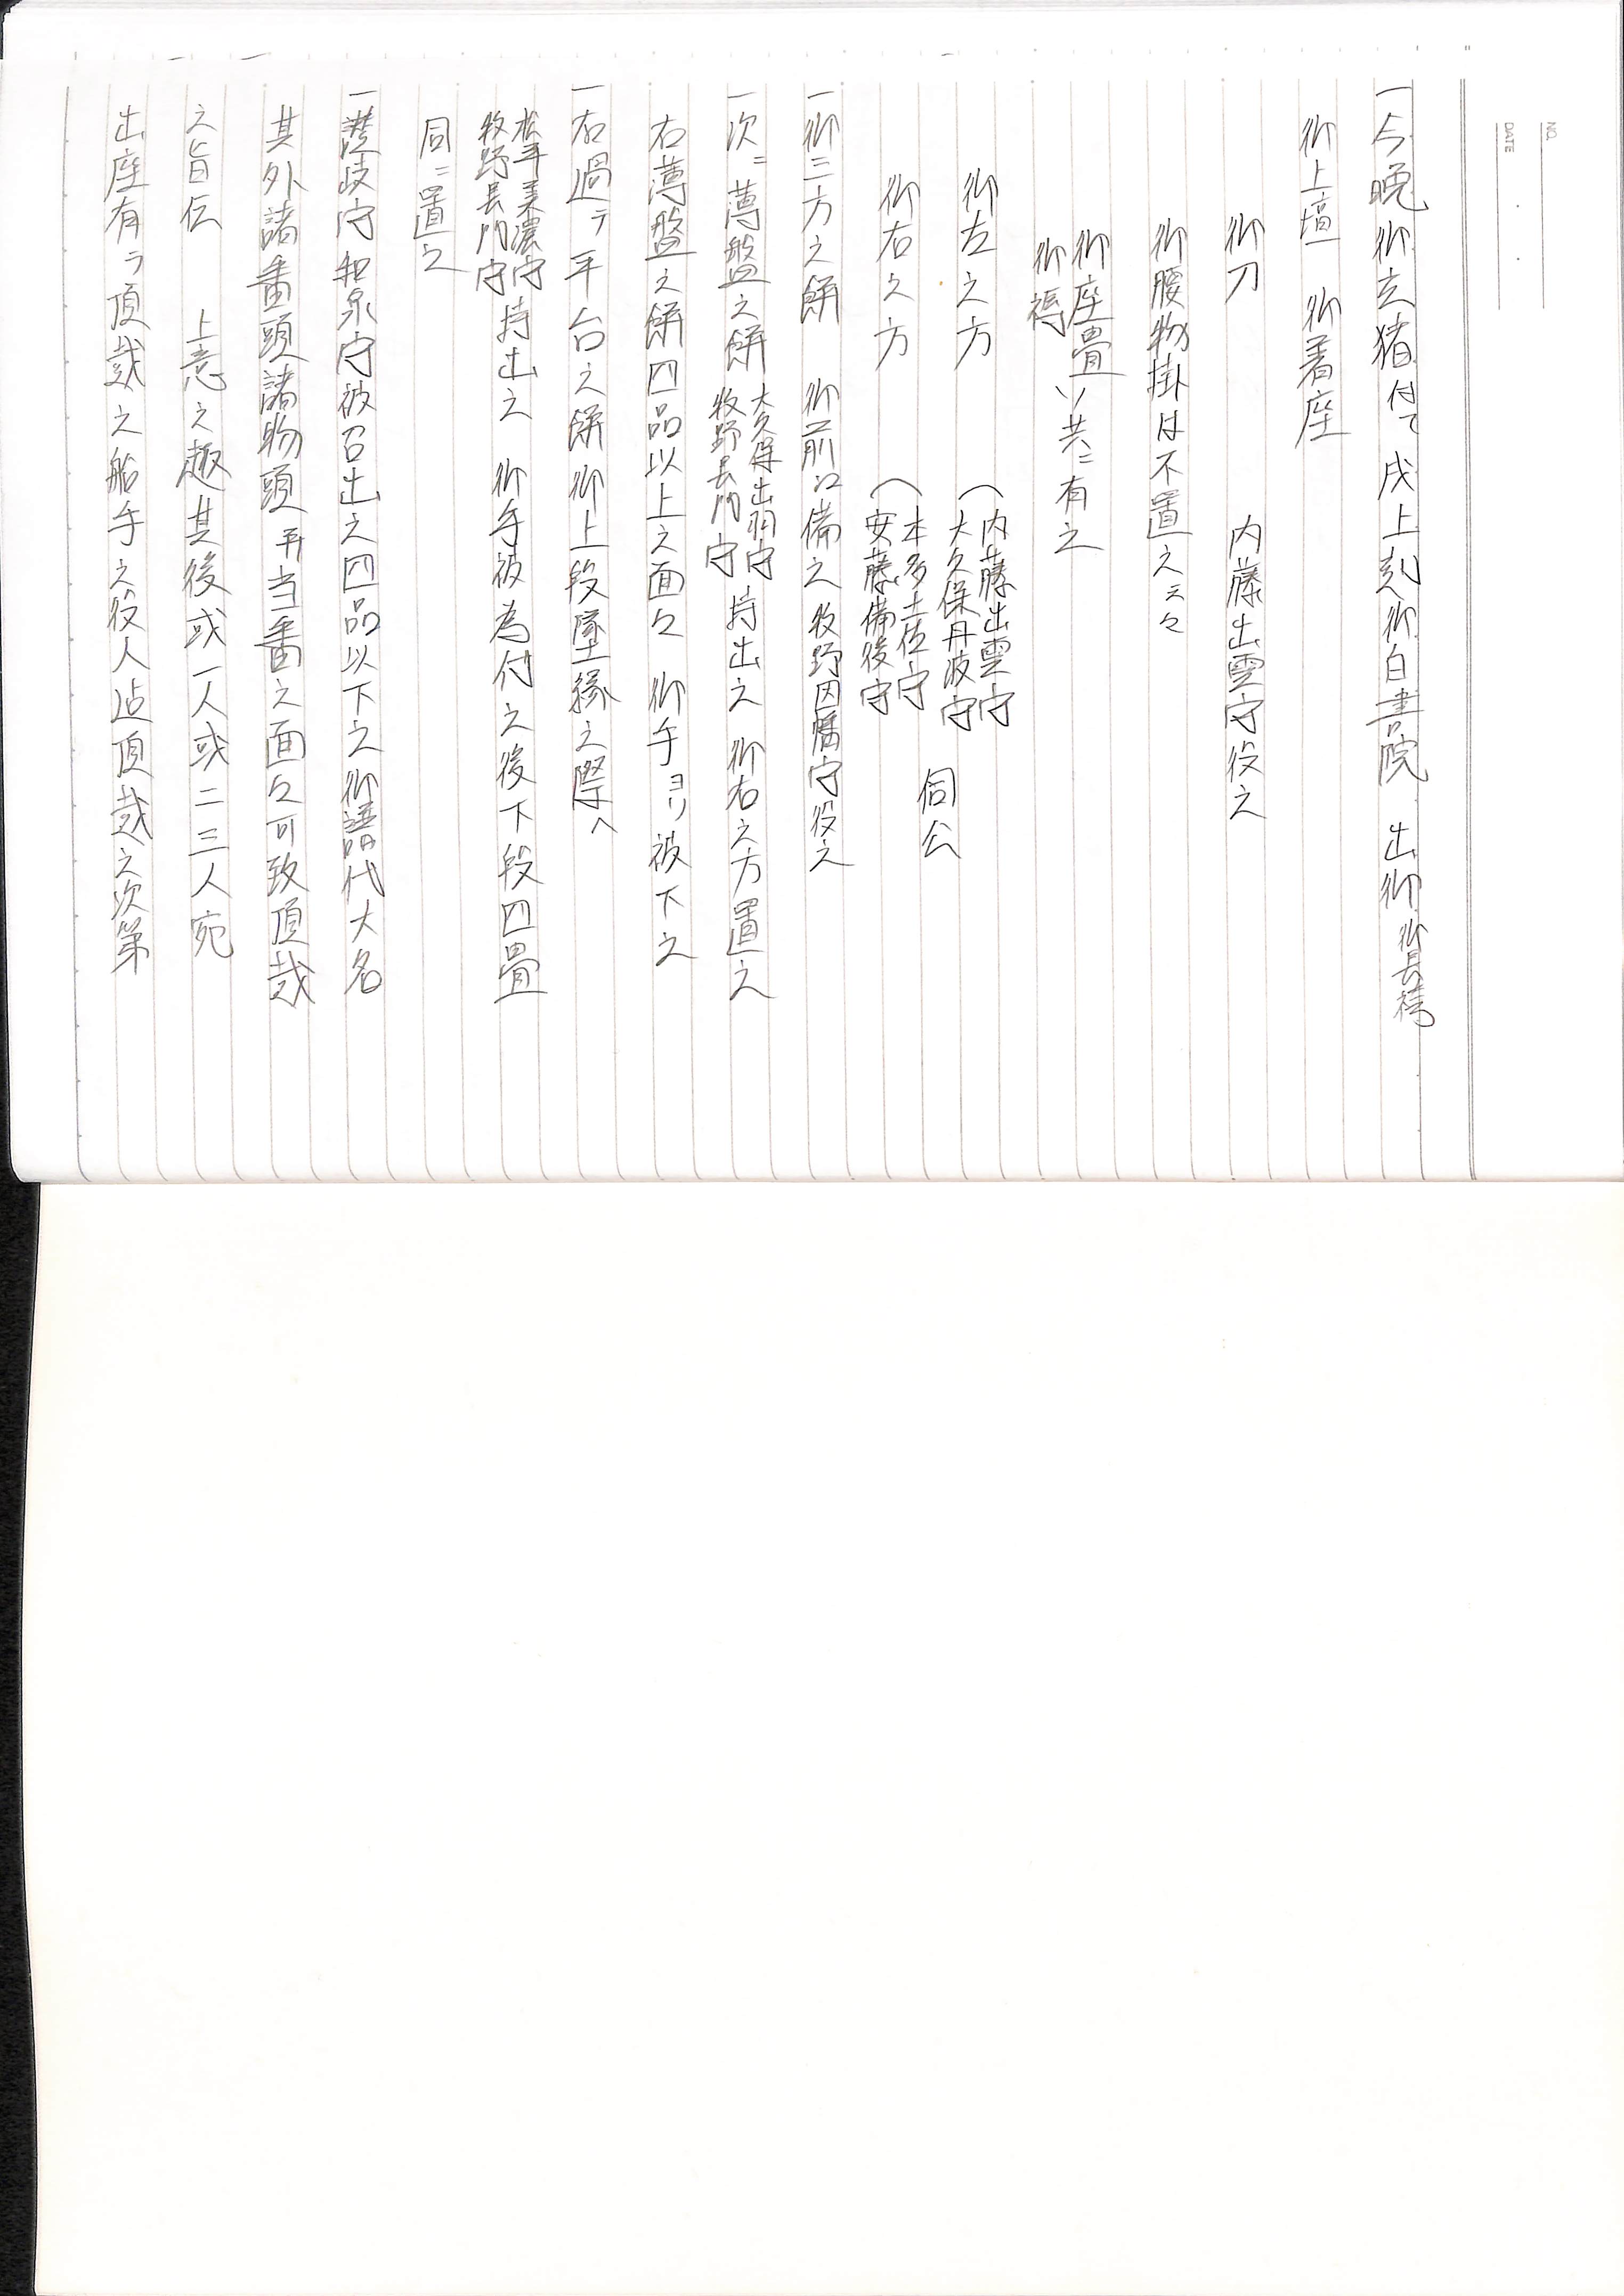 一今晩御玄猪付て 戌上刻御白書院 出御 御長袴
御上壇 御着座
御刀 内藤出雲守役之
御腰物掛は不置之云々
御座畳ハ共ニ有之
御褥
御左之方 (内藤出雲守
大久保丹波守
御右之方 (本多土佐守
安藤備後守
伺公
一御三方之餅 御前江備之牧野因幡守役之
一次ニ薄盤之餅 大久保出羽守
牧野長門守 持出之 御右之方置之
右薄盤之餅四品以上之面々 御手ヨリ被下之
一右過テ平台之餅御上段墜縁之際へ
松平美濃守
牧野長門守 持出之 御手被為付之後下段四畳
同ニ置之
一讃岐守和泉守被召出之四品以下之御譜代大名
其外諸番頭諸物頭并当番之面々可致頂戴
之旨伝 上意之趣其後或一人或二三人宛
出座有テ頂戴之船手之役人迠頂戴之次第
NO.
DATE